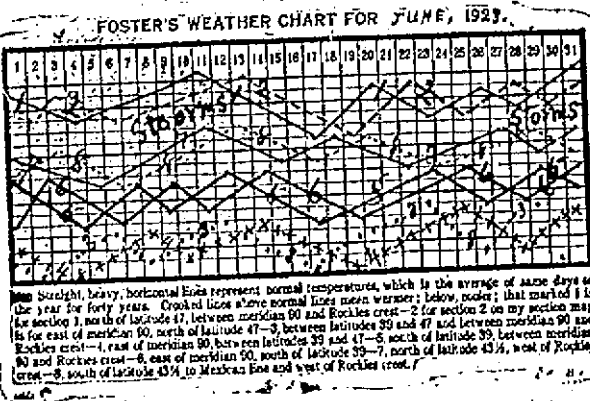 FOSTER'S WEATHER CHART FOR JUNE, 1923.
1 2 3 4 5 6 7 8 9 10 11 12 13 14 15 16 17 18 19 20 21 22 23 24 25 26 27 28 29 30 31
Storms
Storms
Straight, heavy, horizontal lines represent normal temperatures, which is the average of same days of
the year for forty years. Crooked lines above normal lines mean warmer; below, cooler; that marked 1 is
for section 1, north of latitude 47, between meridian 90 and Rockies crest—2 for section 2 on my section map
is for east of meridian 90, north of latitude 47—3, between latitudes 39 and 47 and between meridian 90 and
Rockies crest—4, east of meridian 90, between latitudes 39 and 47—5, south of latitude 39, between meridian
90 and Rockies crest—6, east of meridian 90, south of latitude 39—7, north of latitude 43½, west of Rockies
crest—8, south of latitude 43½ to Mexican line and west of Rockies crest.